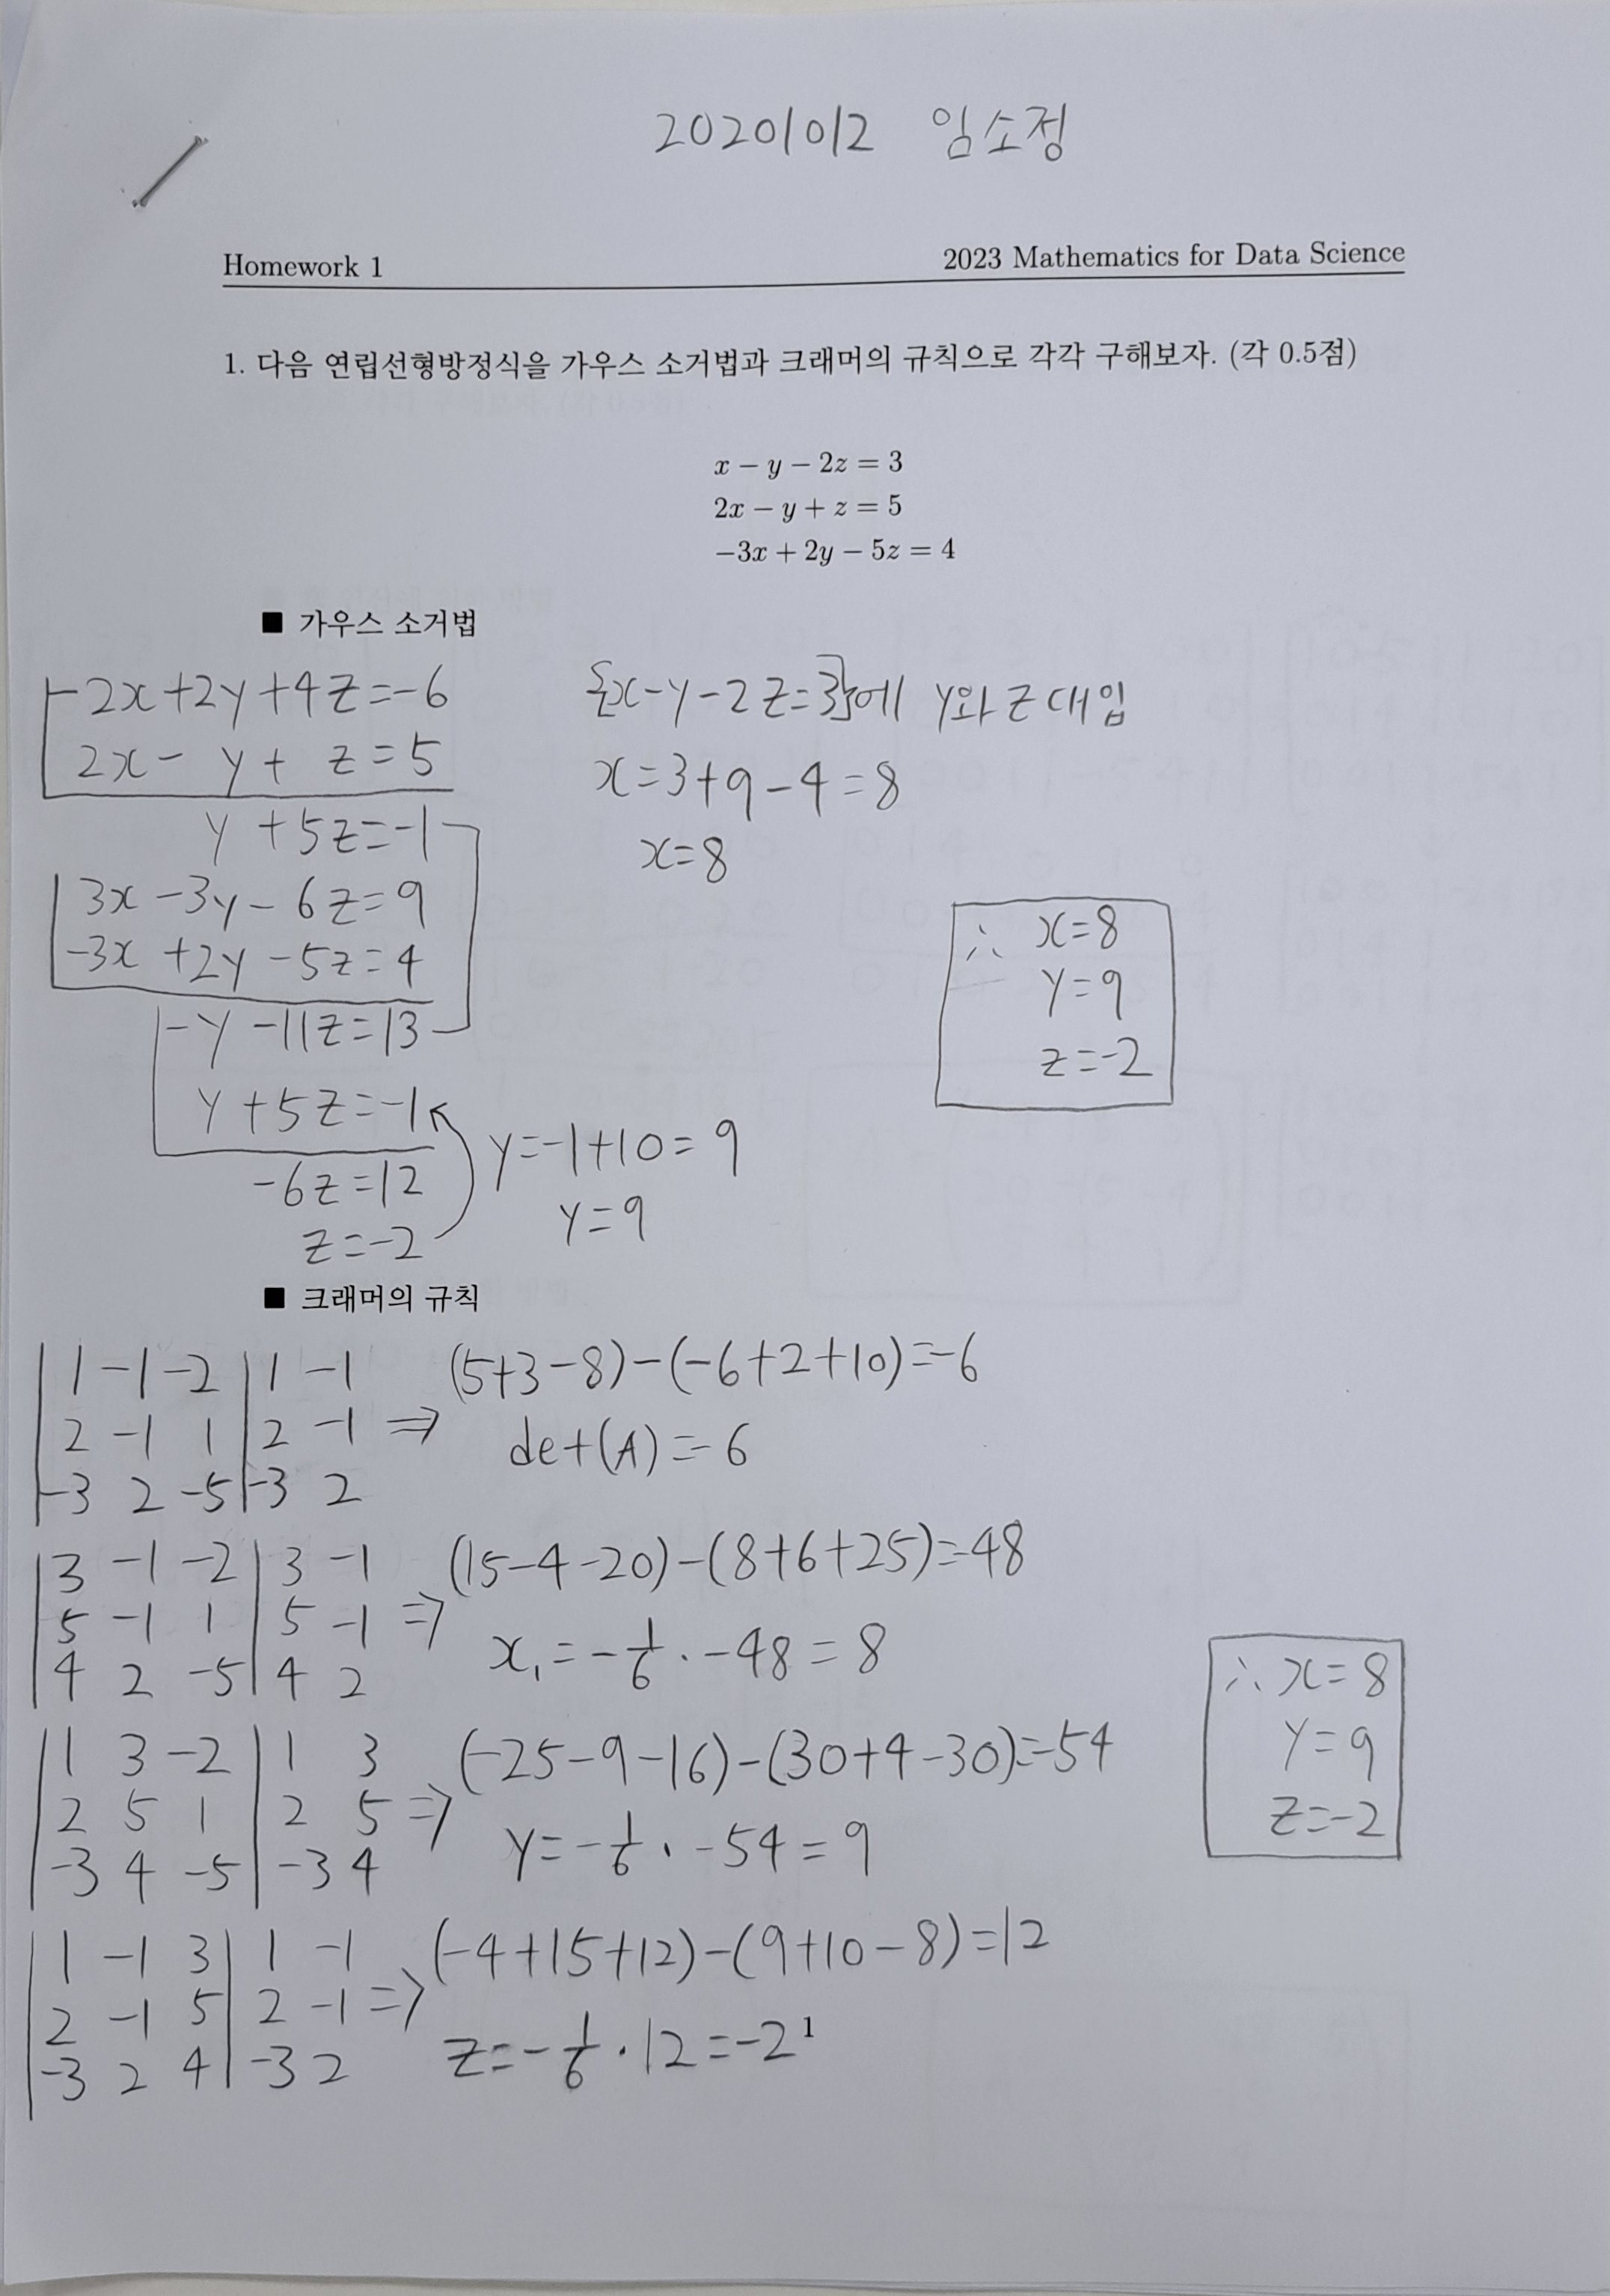 20201012 임소정
Homework 1 2023 Mathematics for Data Science
1. 다음 연립선형방정식을 가우스 소거법과 크래머의 규칙으로 각각 구해보자. (각 0.5점)
x − y − 2z = 3
2x − y + z = 5
−3x + 2y − 5z = 4
■ 가우스 소거법
-2x+2y+4z=-6
2x- y+ z=5
y +5z=-1
3x -3y- 6z=9
-3x +2y -5z=4
-y -11z=13
y +5z=-1
-6z=12
z=-2
y=-1+10=9
y=9
x-y-2z=3에 y와 z 대입
x=3+9-4=8
x=8
∴ x=8
y=9
z=-2
■ 크래머의 규칙
1 -1 -2 | 1 -1 ⇒ (5+3-8)-(-6+2+10)=-6
2 -1 1 | 2 -1 det(A)=-6
-3 2 -5 | -3 2
3 -1 -2 | 3 -1 ⇒ (15-4-20)-(8+6+25)=-48
5 -1 1 | 5 -1
4 2 -5 | 4 2 x₁=-1/6 · -48=8
1 3 -2 | 1 3 ⇒ (-25-9-16)-(30+4-30)=-54
2 5 1 | 2 5
-3 4 -5 | -3 4 y=-1/6 · -54=9
1 -1 3 | 1 -1 ⇒ (-4+15+12)-(9+10-8)=12
2 -1 5 | 2 -1
-3 2 4 | -3 2 z=-1/6 · 12=-2
∴ x=8
y=9
z=-2
1